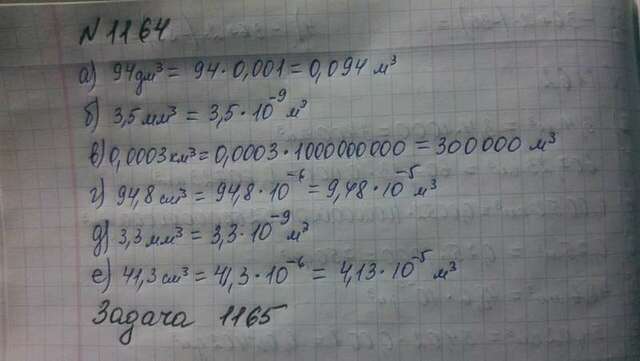 N 1164
а) 94 дм³ = 94 · 0,001 = 0,094 м³
б) 3,5 мм³ = 3,5 · 10⁻⁹ м³
в) 0,0003 км³ = 0,0003 · 1000000000 = 300000 м³
г) 94,8 см³ = 94,8 · 10⁻⁶ = 9,48 · 10⁻⁵ м³
д) 3,3 мм³ = 3,3 · 10⁻⁹ м³
е) 41,3 см³ = 41,3 · 10⁻⁶ = 4,13 · 10⁻⁵ м³
Задача 1165